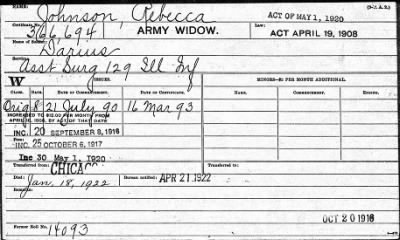 (3-1125.)
Name: Johnson, Rebecca ACT OF MAY 1, 1920
366,694 ARMY WIDOW. ACT APRIL 19, 1908
Name of Soldier: Darius
Service: Asst Surg 129 Ill Inf
W ISSUES. MINORS—$2 PER MONTH ADDITIONAL.
CLASS. RATE. DATE OF COMMENCEMENT. DATE OF CERTIFICATE.
Orig 8 21 July 90 16 Mar 93
INCREASED TO $12.00 PER MONTH FROM
APRIL 19, 1908, BY ACT OF THAT DATE
INC. 20 SEPTEMBER 8, 1916
INC. 25 OCTOBER 6, 1917
Inc 30 May 1, 1920
Transferred from: CHICAGO
Died: Jan. 18, 1922 Bureau notified: APR 21 1922
OCT 20 1916
Former Roll No. 14093